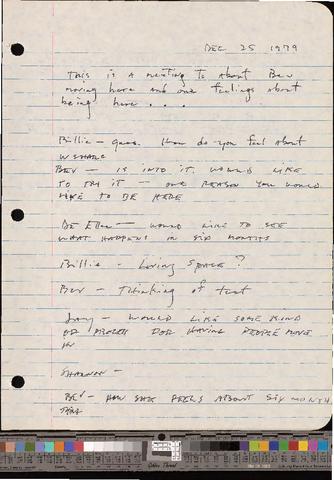 DEC 25 1979
This is a meeting to about Bev
moving here and our feelings about
being here . . .
Billie - ques. How do you feel about
BEV - IS INTO IT. WOULD LIKE
TO TRY IT - ONE REASON YOU WOULD
LIKE TO BE HERE
DE Ellen - WOULD LIKE TO SEE
WHAT HAPPENS IN SIX MONTHS
Billie - Living Space?
Bev - Thinking of tent
- WOULD LIKE SOME KIND
OF PROCESS FOR HAVING PEOPLE MOVE
IN
SHANNON -
BEV - HOW SHE FEELS ABOUT SIX MONTH